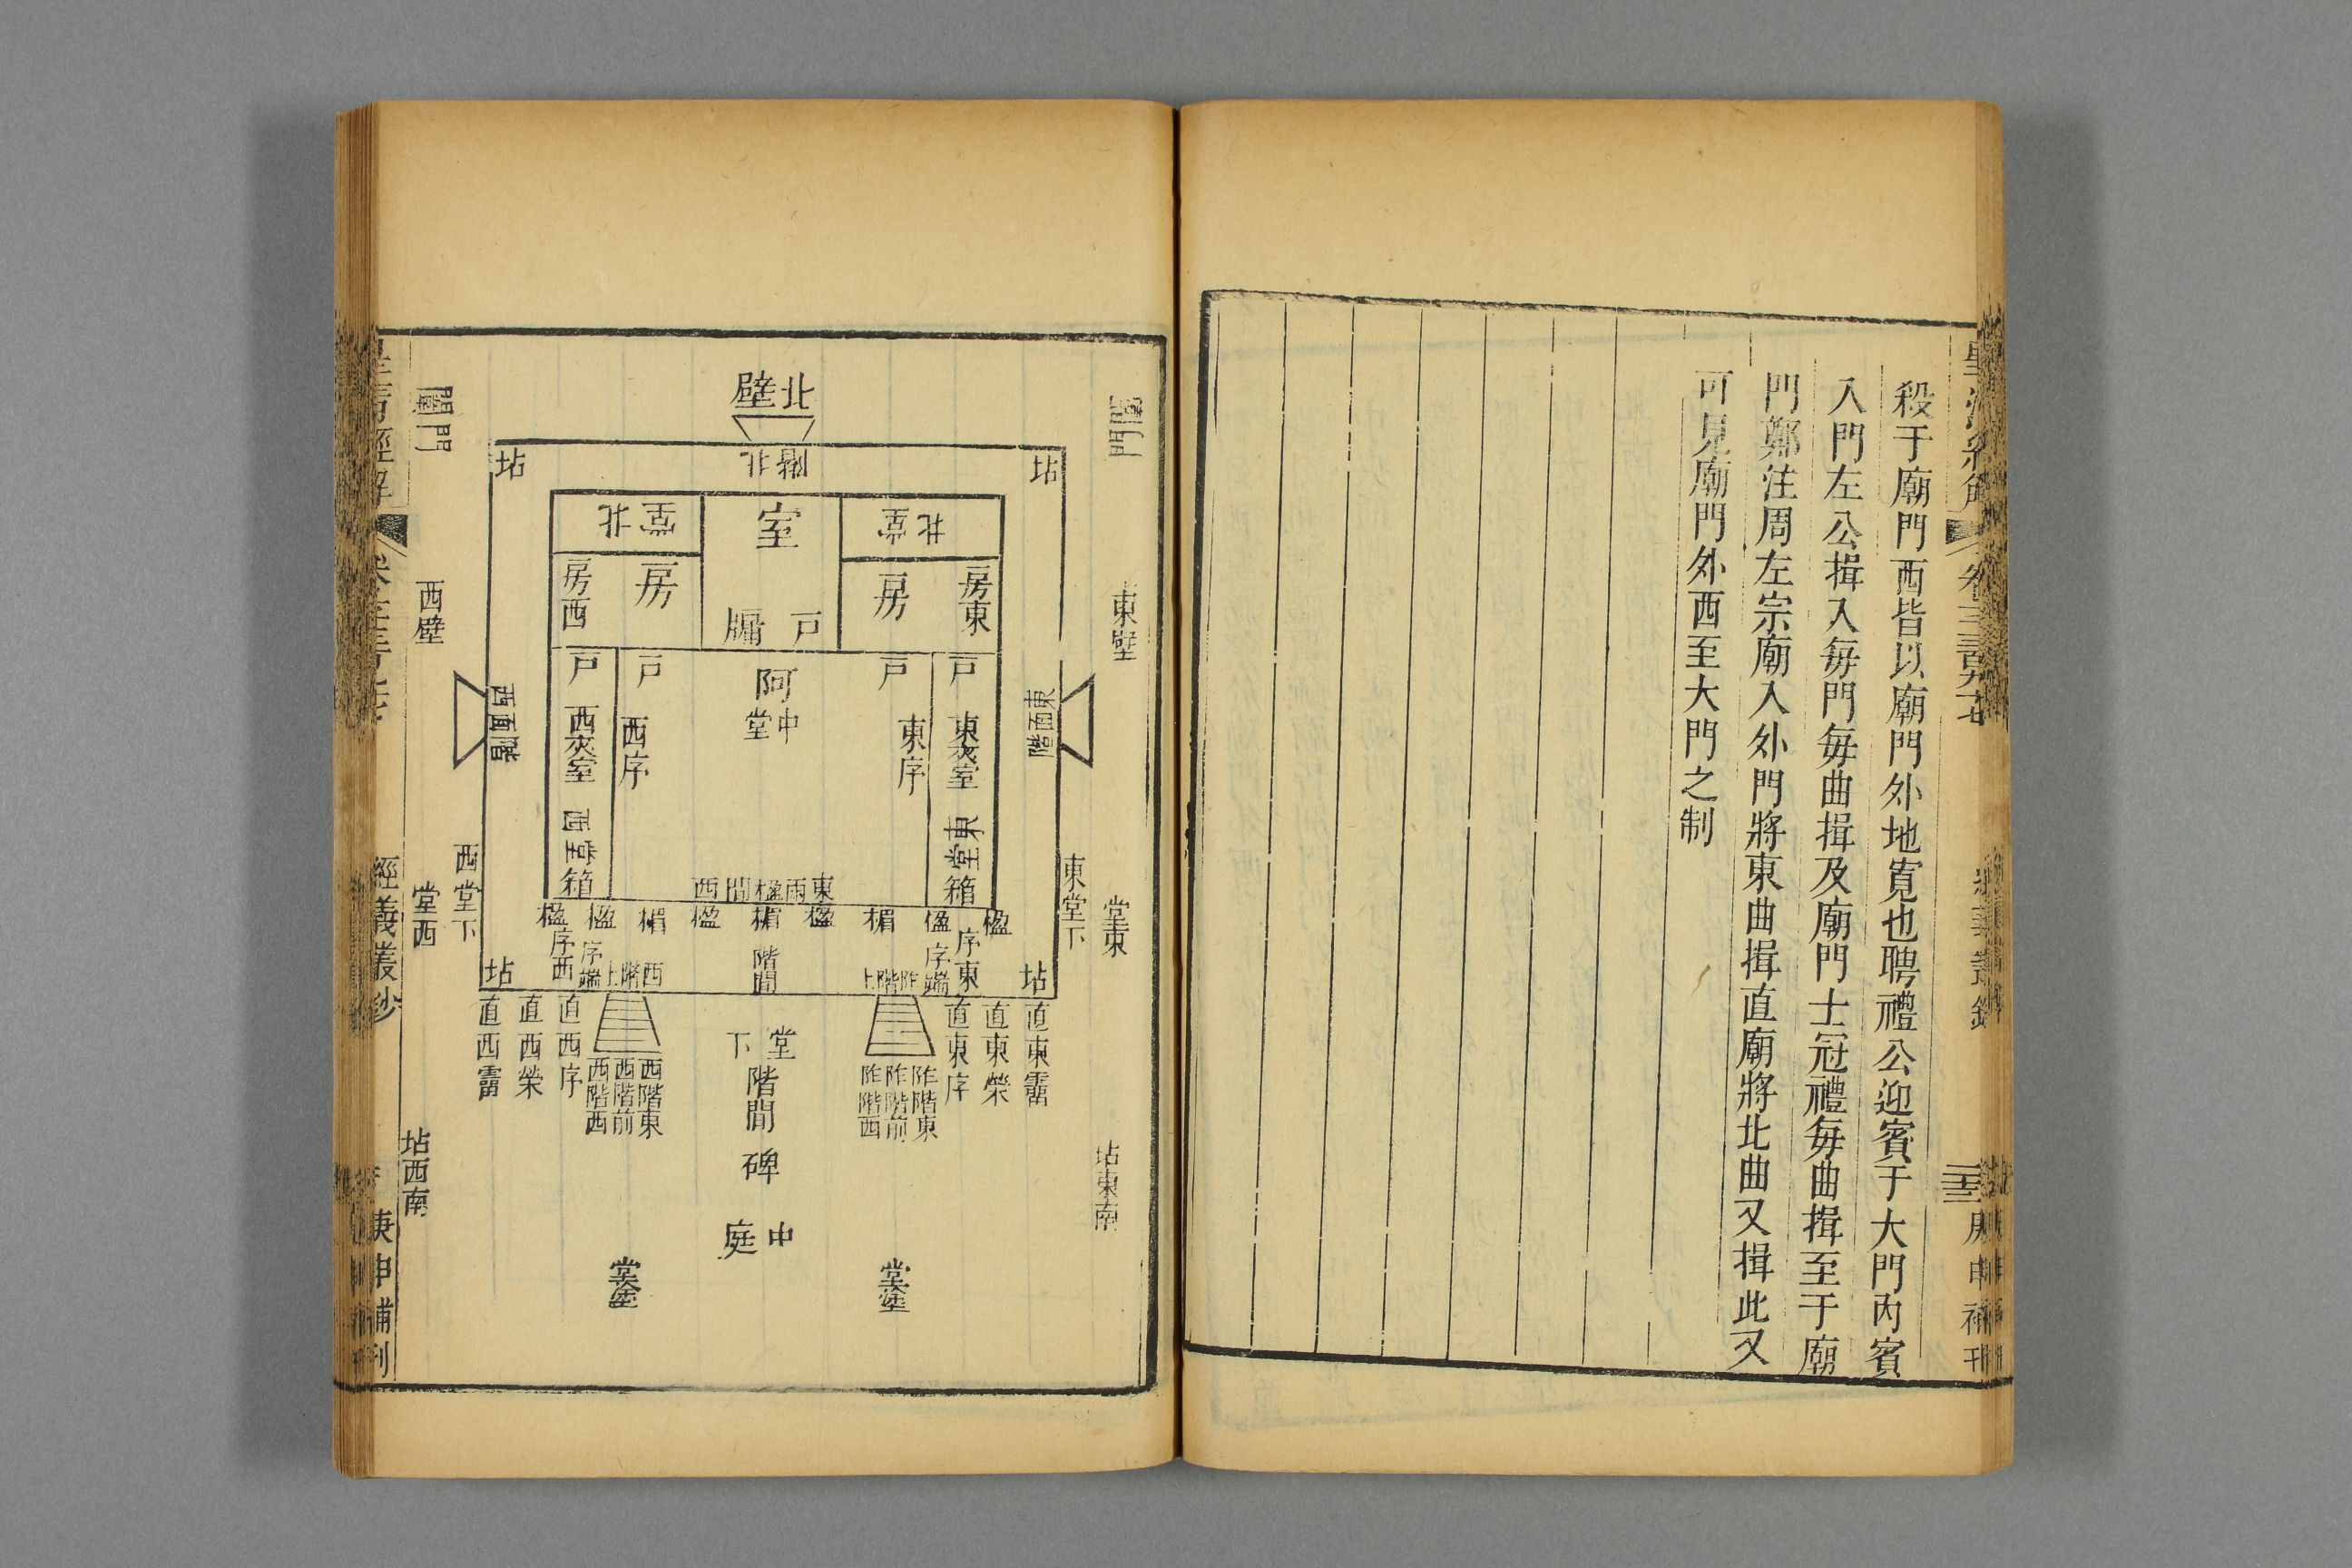 殺于廟門西皆以廟門外地寬也聘禮公迎賓于大門內賓
入門左公揖入每門每曲揖及廟門士冠禮每曲揖至于廟
門鄭注周左宗廟入外門將東曲揖直廟將北曲又揖此又
可見廟門外西至大門之制
卷三百九十七
庚申補刊
闈門
東壁
堂東
坫東南
東堂下
北壁
北階
坫
坫
北堂
室
北堂
房東
房
戶
牖
房
房西
戶
戶
阿
中堂
戶
戶
東夾室
東序
西序
西夾室
東面階
西面階
東堂
箱
西堂
箱
東兩楹間西
楹
楹
楣
楹
楣
楹
楣
楹
楹
序東
序端
阼階上
階間
西階上
序端
序西
坫
坫
直東霤
直東榮
直東序
阼階東
阼階前
阼階西
堂下
階間
碑
中庭
西階東
西階前
西階西
直西序
直西榮
直西霤
堂塗
堂塗
闈門
西壁
西堂下
堂西
坫西南
皇清經解
經義叢鈔
庚申補刊